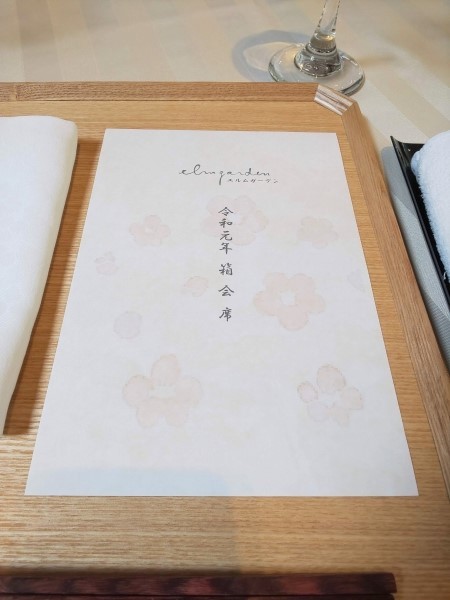 elmgarden
エルムガーデン
令和元年 箱会席